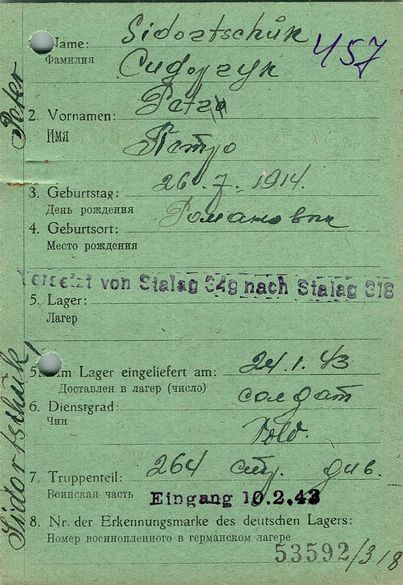 1. Name: Sidortschŭk
Фамилия Сидорчук
457
2. Vornamen: Petro
Имя Петро
3. Geburtstag: 26.7.1914.
День рождения
4. Geburtsort:
Место рождения
Versetzt von Stalag 349 nach Stalag 318
5. Lager:
Лагер
5. Im Lager eingeliefert am: 24.1.43
Доставлен в лагер (число)
6. Dienstgrad: солдат
Чин
7. Truppenteil: 264 стр. див.
Воинская часть Eingang 10.2.43
8. Nr. der Erkennungsmarke des deutschen Lagers:
Номер военнопленного в германском лагере
53592/318
Peter
Sidortschŭk,